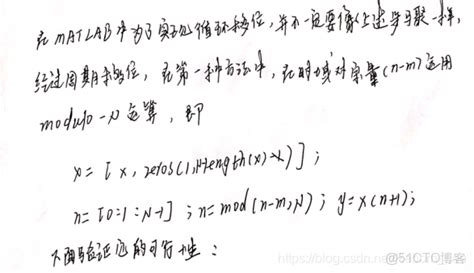 在MATLAB中为了实现循环移位,并不一定要像上述步骤一样,
经过周期移位,在第一种方法中,在时域对变量(n-m)运用
modulo-N运算,即
x=[x,zeros(1,N-length(x))];
n=[0:1:N-1];n=mod(n-m,N);y=x(n+1);
下面验证它的可行性:
https://blog.csdn.ne
@51CTO博客